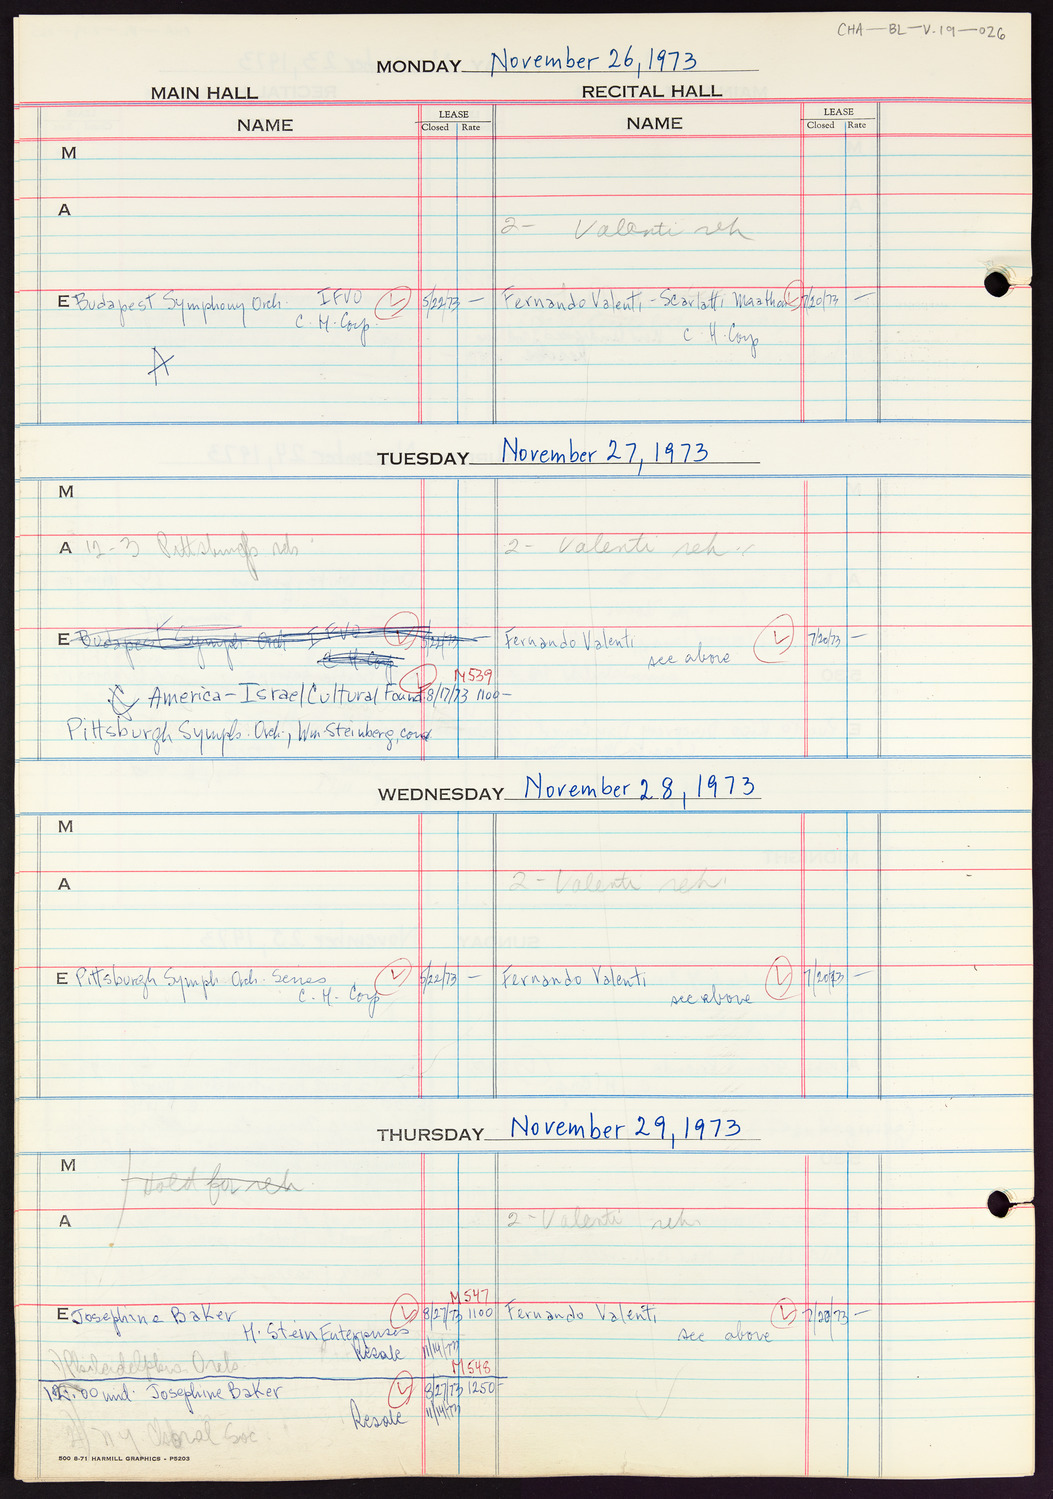 CHA-BL-V.19-026
MONDAY November 26, 1973
MAIN HALL RECITAL HALL
NAME LEASE Closed Rate NAME LEASE Closed Rate
M
A
2- Valenti reh
E Budapest Symphony Orch. IFVO 5/22/73 — Fernando Valenti - Scarlatti Maathon 7/20/73 —
C. H. Corp. C. H. Corp
A
TUESDAY November 27, 1973
M
A 12-3 Pittsburgh reh 2- Valenti reh
E Budapest Symph Orch IFVO 5/22/73 — Fernando Valenti 7/20/73 —
C H Corp see above
M539
America-Israel Cultural Found. 8/17/73 1100-
Pittsburgh Symph. Orch., Wm. Steinberg, cond
WEDNESDAY November 28, 1973
M
A 2- Valenti reh.
E Pittsburgh Symph. Orch. Series 5/22/73 — Fernando Valenti 7/20/73 —
C. H. Corp see above
THURSDAY November 29, 1973
M Hold for reh
A 2- Valenti reh.
M547
E Josephine Baker 8/27/73 1100 Fernando Valenti 7/20/73 —
H. Stein Enterprises see above
Resale 11/14/73
Philadelphia Orch
M548
12:00 mid. Josephine Baker 8/27/73 1250-
Resale 11/14/73
NY Choral Soc.
500 8-71 HARMILL GRAPHICS - P5203